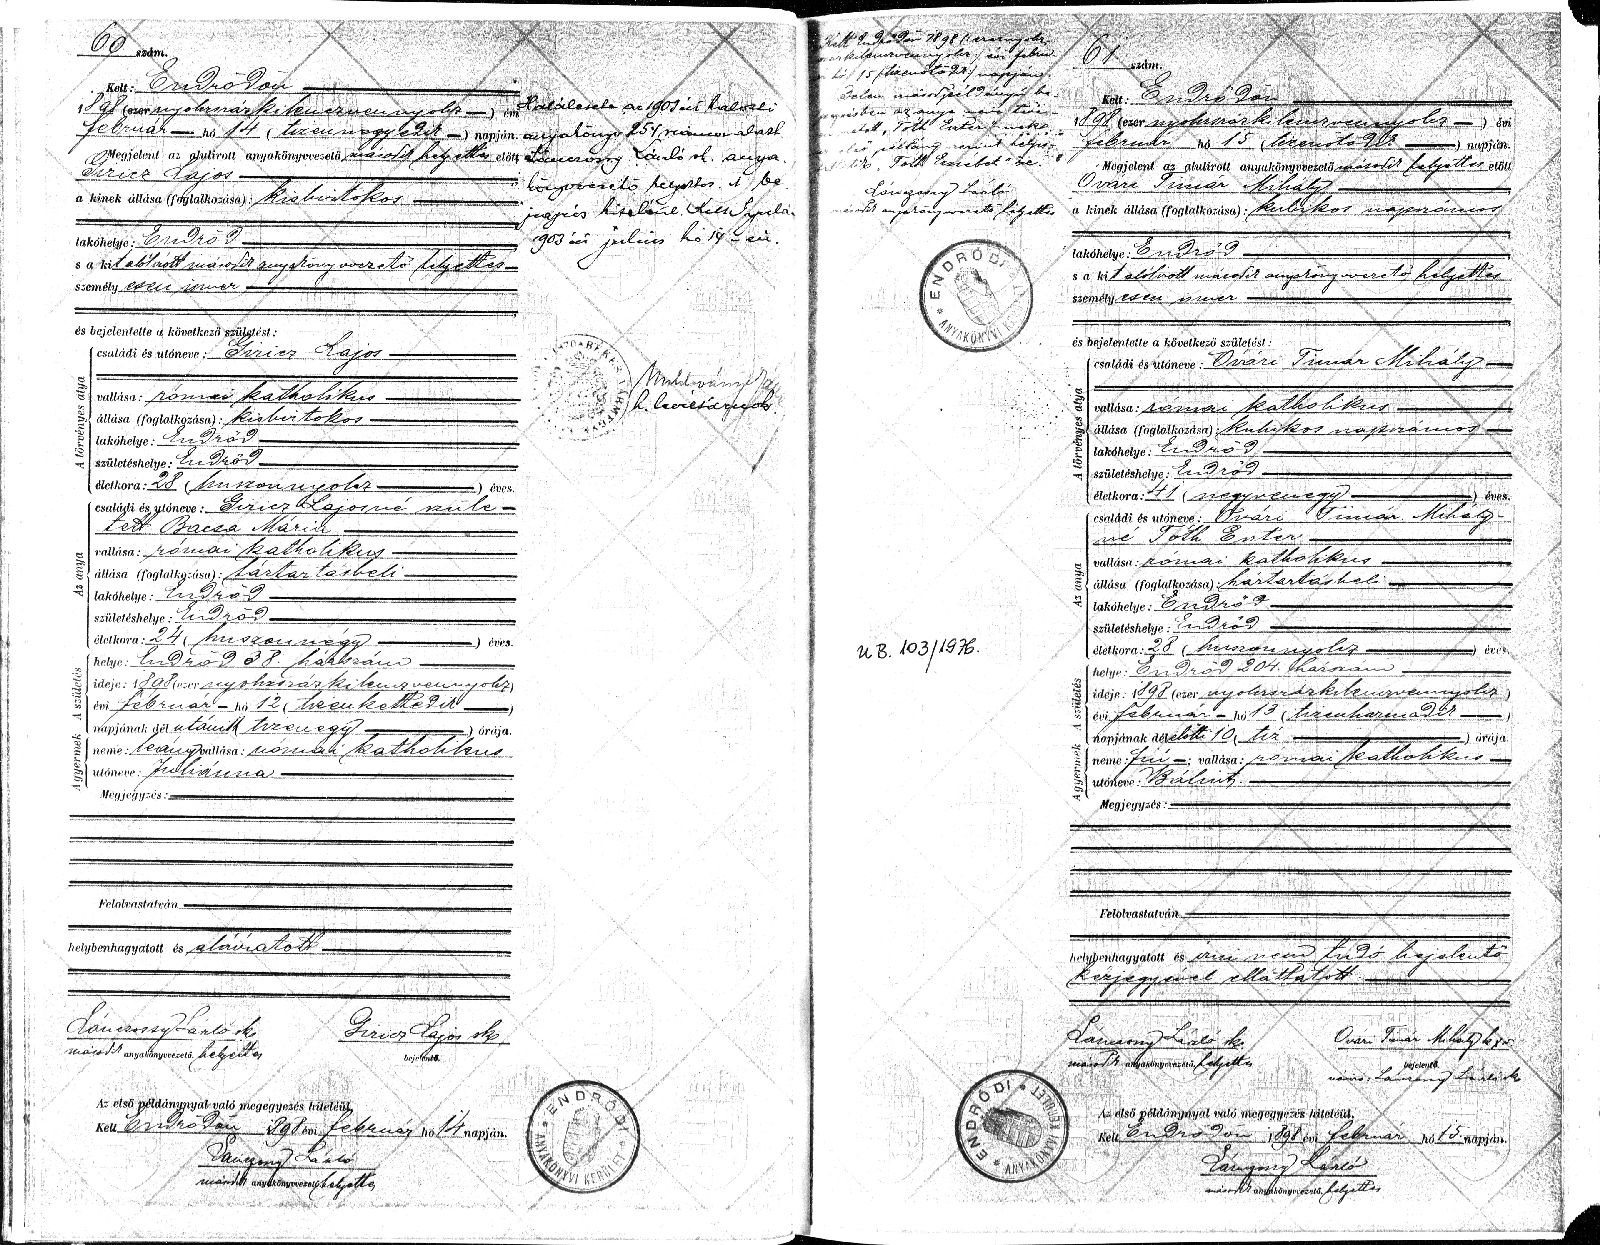 60 szám.
Kelt: Endrődön
1898 (ezer nyolcszázkilenczvennyolcz) évi
február hó 14 (tizennegyedik) napján.
Megjelent az alulirott anyakönyvvezető második helyettes előtt
Giricz Lajos
a kinek állása (foglalkozása): kisbirtokos
lakóhelye: Endrőd
s a kit alólirott második anyakönyvvezető helyettes
személyesen ismer
és bejelentette a következő születést:
A törvényes atya
családi és utóneve: Giricz Lajos
vallása: római katholikus
állása (foglalkozása): kisbirtokos
lakóhelye: Endrőd
születéshelye: Endrőd
életkora: 28 (huszonnyolcz) éves.
Az anya
családi és utóneve: Giricz Lajosné szüle-
tett Bacsa Mária
vallása: római katholikus
állása (foglalkozása): háztartásbeli
lakóhelye: Endrőd
születéshelye: Endrőd
életkora: 24 (huszonnégy) éves.
A születés
helye: Endrőd 38. házszám
ideje: 1898 (ezer nyolcszázkilenczvennyolcz)
évi február hó 12 (tizenkettedik)
napjának dél utáni tizenegy) órája.
A gyermek
neme: leány vallása: római katholikus
utóneve: Juliánna
Megjegyzés:
Felolvastatván
helybenhagyatott és aláiratott
Lánczossy László sk
második anyakönyvvezető helyettes
Giricz Lajos sk
bejelentő.
Az első példánynyal való megegyezés hiteléül,
Kelt Endrődön 898 évi február hó 14 napján.
második anyakönyvvezető helyettes
ENDRŐDI ANYAKÖNYVI KERÜLET
Halálesete az 1903 évi halotti
anyakönyv 254 szám alatt
László sk. anya-
könyvvezető helyettes. A be-
jegyzés hiteléül. Kelt Gyula,
1903 évi július hó 14-én.
h. levéltárnok
évi
napján.
Tóth Eszter
László
második anyakönyvvezető helyettes
ENDRŐDI ANYAKÖNYVI
UB. 103/1976.
61 szám.
Kelt: Endrődön
1898 (ezer nyolcszázkilenczvennyolcz) évi
február hó 15 (tizenötödik) napján.
Megjelent az alulirott anyakönyvvezető második helyettes előtt
Óvári Timár Mihály
a kinek állása (foglalkozása): kubikos napszámos
lakóhelye: Endrőd
s a kit alólirott második anyakönyvvezető helyettes
személyesen ismer
és bejelentette a következő születést:
A törvényes atya
családi és utóneve: Óvári Timár Mihály
vallása: római katholikus
állása (foglalkozása): kubikos napszámos
lakóhelye: Endrőd
születéshelye: Endrőd
életkora: 41 (negyvenegy) éves.
Az anya
családi és utóneve: Óvári Timár Mihály-
né Tóth Eszter
vallása: római katholikus
állása (foglalkozása): háztartásbeli
lakóhelye: Endrőd
születéshelye: Endrőd
életkora: 28 (huszonnyolcz) éves
A születés
helye: Endrőd 204. házszám
ideje: 1898 (ezer nyolcszázkilenczvennyolcz)
évi február hó 13 (tizenharmadik)
napjának dél előtti 10 (tiz) órája
A gyermek
neme: fiú; vallása: római katholikus
utóneve: Bálint
Megjegyzés:
Felolvastatván
helybenhagyatott és irni nem tudó bejelentő
kézjegyével elláttatott
László sk.
második anyakönyvvezető, helyettes
Óvári Timár Mihály
bejelentő.
Az első példánynyal való megegyezés hiteléül,
Kelt Endrődön 1898 évi február hó 15 napján.
László
második anyakönyvvezető, helyettes
ENDRŐDI ANYAKÖNYVI KERÜLET